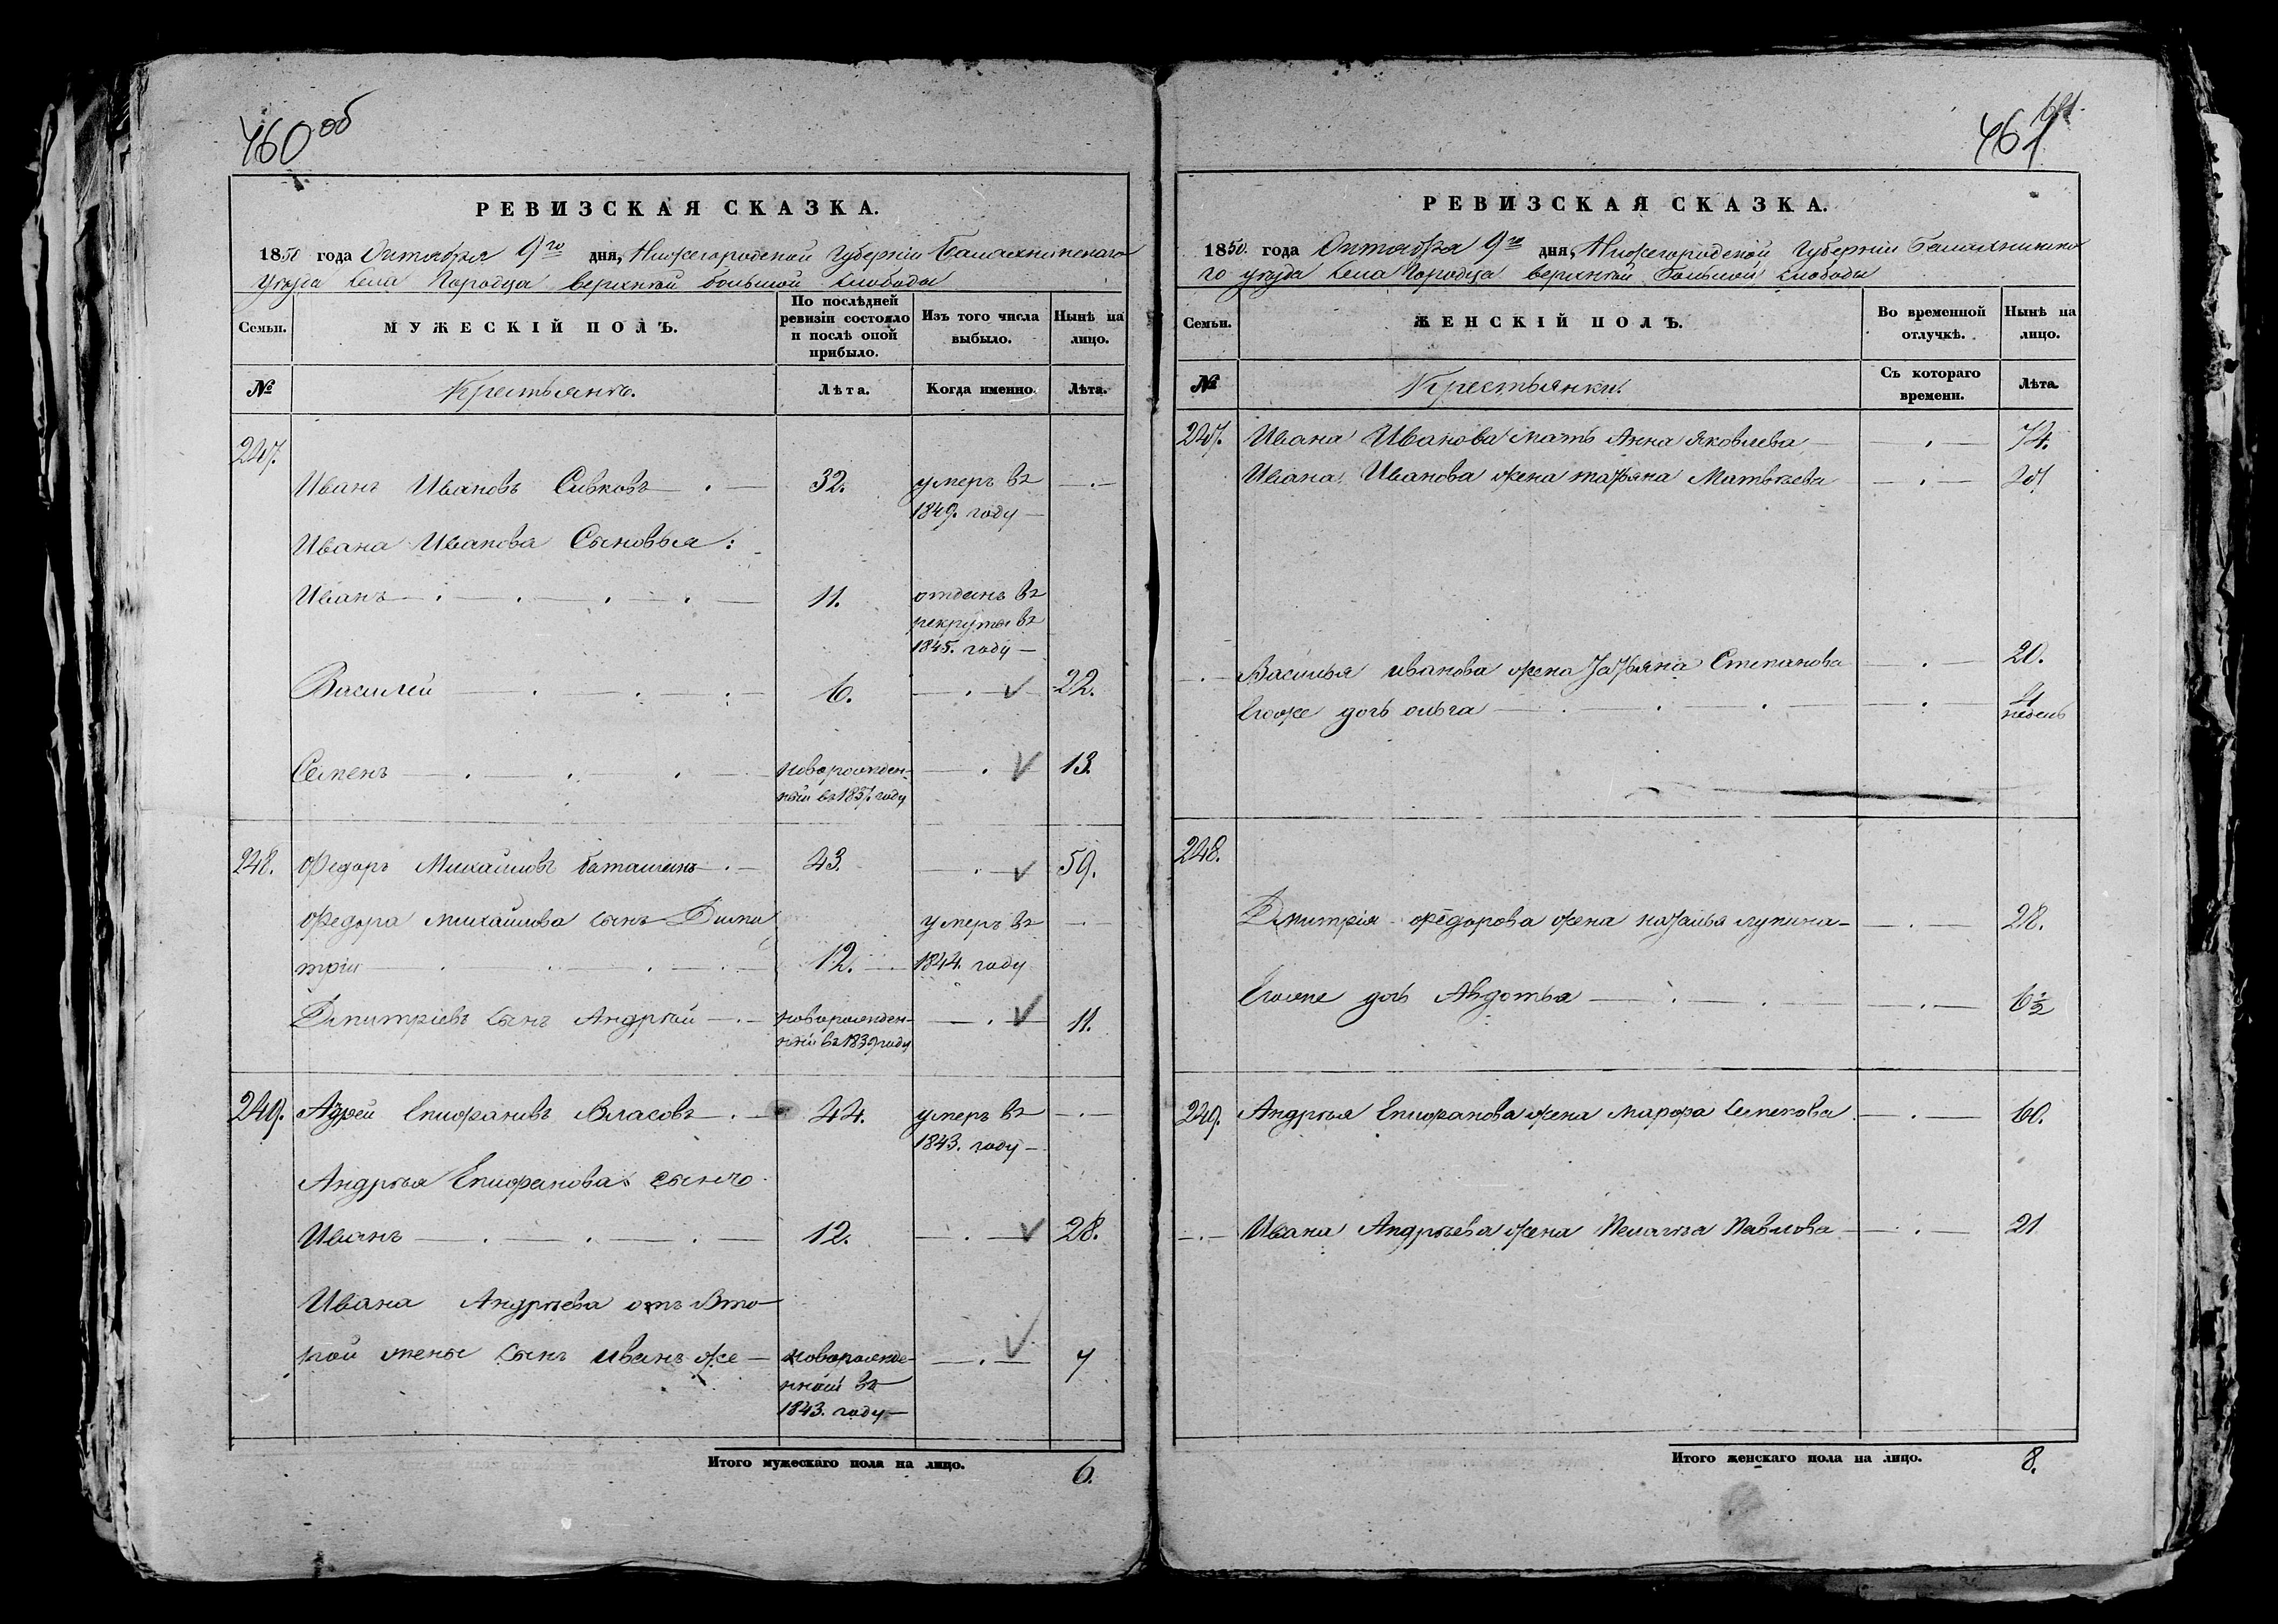 460 об
РЕВИЗСКАЯ СКАЗКА.
1850 года Октября 9го дня, Нижегородской Губерніи Балахнинскаго
уѣзда села Городца верхнѣй большой слободы
Семьи. МУЖЕСКІЙ ПОЛЪ. По послѣдней ревизіи состояло и послѣ оной прибыло. Изъ того числа выбыло. Нынѣ на лицо.
№ Крестьянѣ. Лѣта. Когда именно. Лѣта.
247.
Иванъ Ивановъ Сивковъ 32. умеръ въ
1849. году
Ивана Иванова Сыновья:
Иванъ 11. отданъ въ
рекруты въ
1845. году
Василей 6. 22.
Семенъ новорожден- 13.
ный въ 1837. году
248. Федоръ Михайловъ баташинъ 43. 59.
Федора михайлова сынъ Дими умеръ въ
трій 12. 1844. году
Дмитріевъ сынъ Андрѣй новорожден- 11.
ный въ 1839 году
249. Адрей Епифановъ Власовъ 44. умеръ въ
1843. году
Андрѣя Епифанова сынъ
Иванъ 12. 28.
Ивана Андрѣева отъ Вто-
рой жены сынъ иванъ же новорожде- 7
нный въ
1843. году
Итого мужескаго пола на лицо. 6.
461
РЕВИЗСКАЯ СКАЗКА.
1850. года Октября 9го дня, Нижегородской Губерніи Балахнинска-
го уѣзда села Городца верхнѣй большой слободы
Семьи. ЖЕНСКІЙ ПОЛЪ. Во временной отлучкѣ. Нынѣ на лицо.
№ Крестьянки. Съ котораго времени. Лѣта.
247. Ивана Иванова мать Анна Яковлева 74.
Ивана Иванова жена татьяна Матвѣева
Василья иванова жена Татьяна Степанова 20.
Егоже дочь ольга
недель
248.
Дмитрія федорова жена наталья лупина 28.
Егоже дочь Авдотья 6½
249. Андрѣя Епифанова жена марфа семенова 60.
Ивана Андрѣева жена Пелагѣа Павлова 21
Итого женскаго пола на лицо. 8.